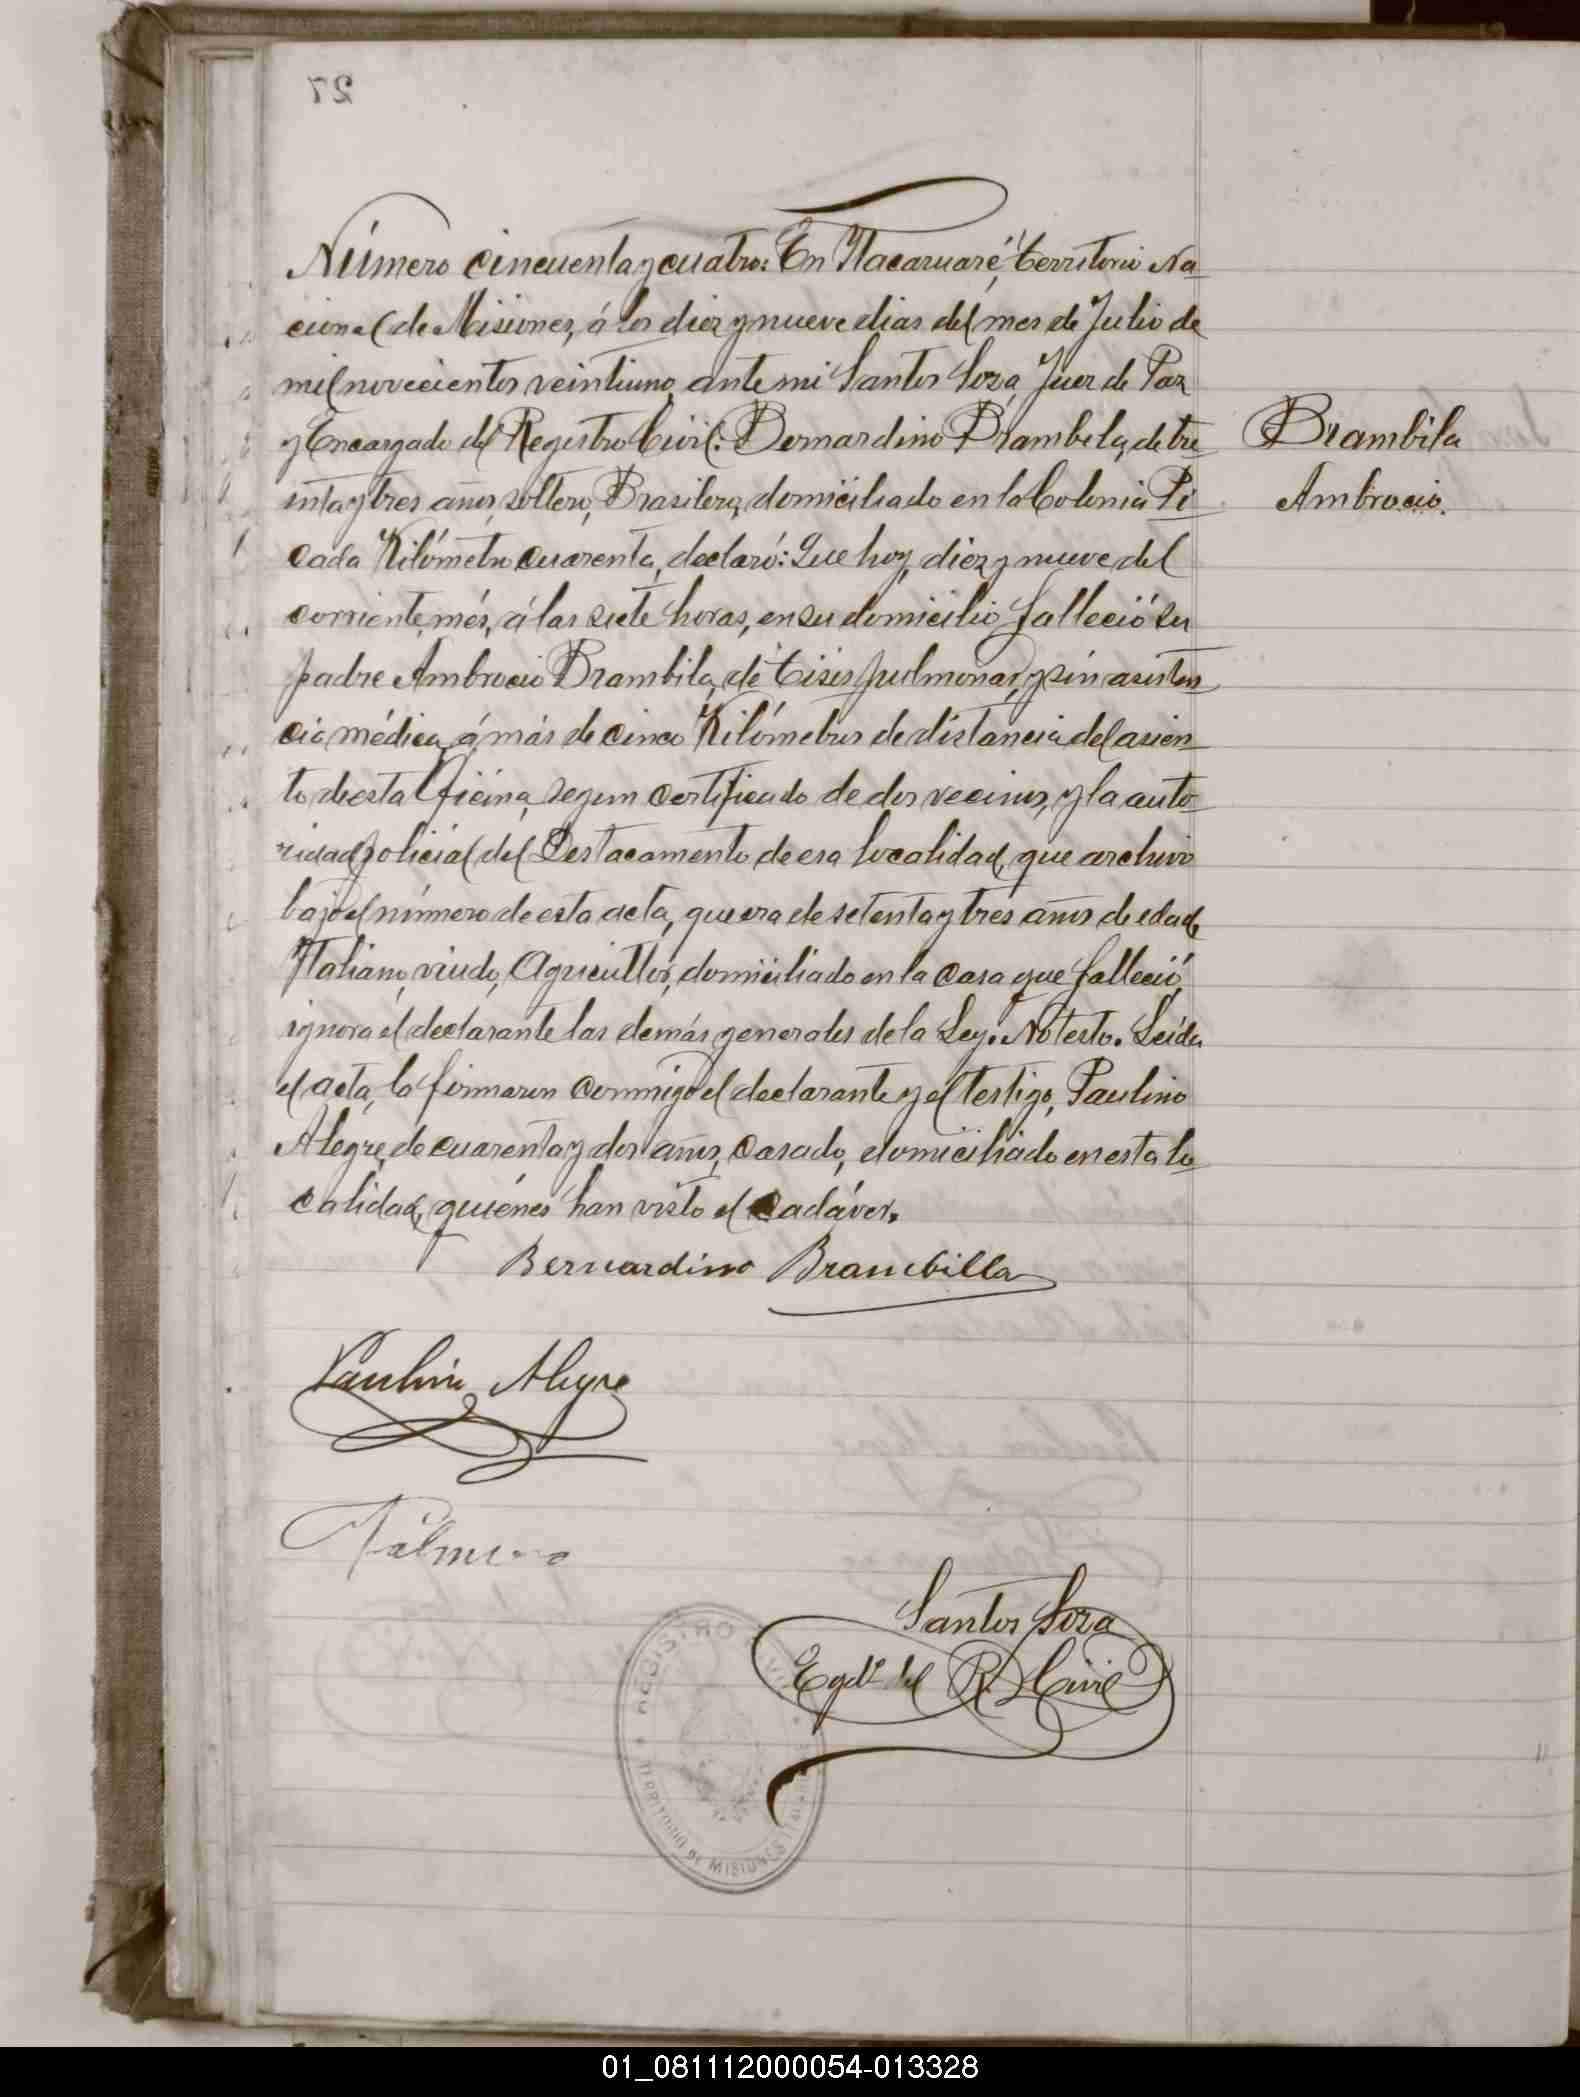 27
Número cincuenta y cuatro: En Itacaruaré, territorio Na-
cional de Misiones, á los diez y nueve dias del mes de Julio de
mil novecientos veintiuno, ante mi Santos Soza, Juez de Paz
y Encargado del Registro Civil: Bernardino Brambila, de tre-
inta y tres años, soltero, Brasilero, domiciliado en la Colonia Pi-
cada Kilómetro cuarenta, declaró: Que hoy, diez y nueve del
corriente més, á las siete horas, en su domicilio falleció su
padre Ambrocio Brambila, de tisis pulmonar, y sin asisten-
cia médica, á más de cinco Kilómetros de distancia del asien-
to de esta Oficina, segun certificado de dos vecinos, y la auto-
ridad policial del Destacamento de esa localidad, que archivo
bajo el número de esta acta, que era de setenta y tres años de edad,
Italiano, viudo, Agricultor, domiciliado en la casa que falleció,
ignora el declarante las demás generales de la Ley. No testo. Leida
el acta, la firmaron conmigo el declarante y el testigo, Paulino
Alegre, de cuarenta y dos años, casado, domiciliado en esta lo-
calidad, quiénes han visto el cadáver.
Brambila
Ambrocio.
Bernardino Brambilla
Paulino Alegre
Santos Soza
Egdo del R. Civil
REGISTRO CIVIL
TERRITORIO DE MISIONES
01_081112000054-013328